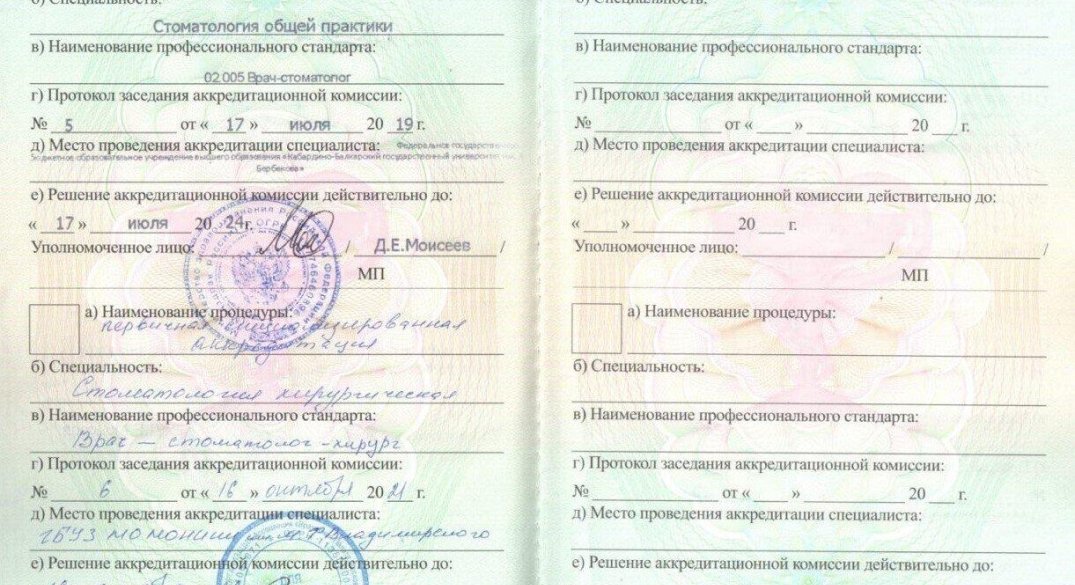 б) Специальность:
Стоматология общей практики
в) Наименование профессионального стандарта:
02.005 Врач-стоматолог
г) Протокол заседания аккредитационной комиссии:
№ 5 от « 17 » июля 20 19 г.
д) Место проведения аккредитации специалиста: Федеральное государственное
бюджетное образовательное учреждение высшего образования «Кабардино-Балкарский государственный университет им.
Бербекова»
е) Решение аккредитационной комиссии действительно до:
« 17 » июля 20 24 г.
Уполномоченное лицо: / Д.Е.Моисеев /
МП
а) Наименование процедуры:
первичная специализированная
аккредитация
б) Специальность:
Стоматология хирургическая
в) Наименование профессионального стандарта:
Врач – стоматолог-хирург
г) Протокол заседания аккредитационной комиссии:
№ 6 от « 16 » октября 20 21 г.
д) Место проведения аккредитации специалиста:
ГБУЗ МО МОНИКИ им. М.Ф. Владимирского
е) Решение аккредитационной комиссии действительно до:
б) Специальность:
в) Наименование профессионального стандарта:
г) Протокол заседания аккредитационной комиссии:
№ от « » 20 г.
д) Место проведения аккредитации специалиста:
е) Решение аккредитационной комиссии действительно до:
« » 20 г.
Уполномоченное лицо: / /
МП
а) Наименование процедуры:
б) Специальность:
в) Наименование профессионального стандарта:
г) Протокол заседания аккредитационной комиссии:
№ от « » 20 г.
д) Место проведения аккредитации специалиста:
е) Решение аккредитационной комиссии действительно до: